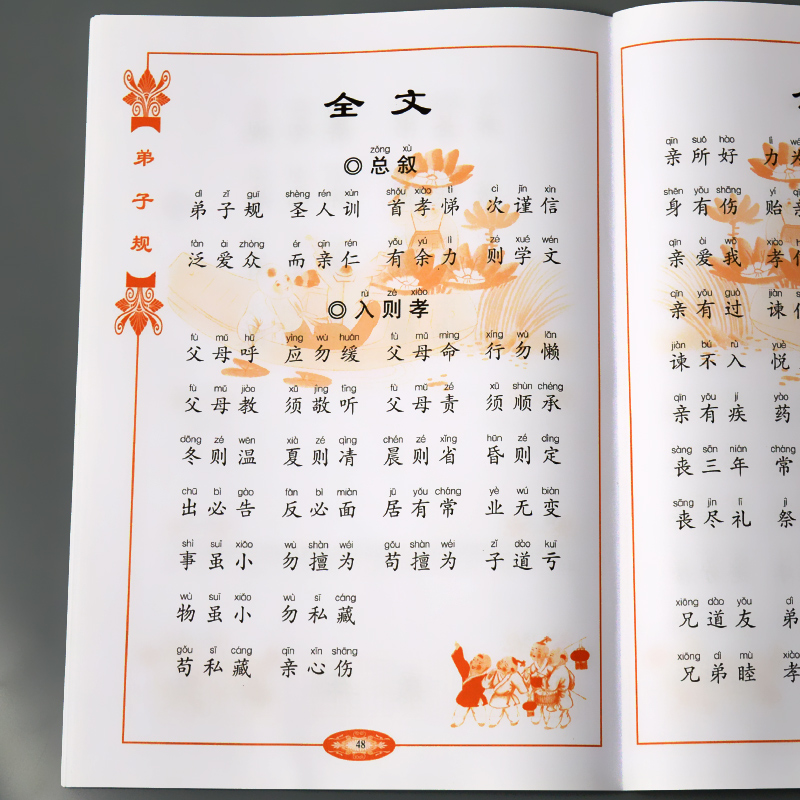 弟子规
全文
zǒng xù
◎总叙
dì zǐ guī shèng rén xùn shǒu xiào tì cì jǐn xìn
弟子规 圣人训 首孝悌 次谨信
fàn ài zhòng ér qīn rén yǒu yú lì zé xué wén
泛爱众 而亲仁 有余力 则学文
rù zé xiào
◎入则孝
fù mǔ hū yìng wù huǎn fù mǔ mìng xíng wù lǎn
父母呼 应勿缓 父母命 行勿懒
fù mǔ jiào xū jìng tīng fù mǔ zé xū shùn chéng
父母教 须敬听 父母责 须顺承
dōng zé wēn xià zé qìng chén zé xǐng hūn zé dìng
冬则温 夏则凊 晨则省 昏则定
chū bì gào fǎn bì miàn jū yǒu cháng yè wú biàn
出必告 反必面 居有常 业无变
shì suī xiǎo wù shàn wéi gǒu shàn wéi zǐ dào kuī
事虽小 勿擅为 苟擅为 子道亏
wù suī xiǎo wù sī cáng
物虽小 勿私藏
gǒu sī cáng qīn xīn shāng
苟私藏 亲心伤
48
qīn suǒ hào lì
亲所好 力为
shēn yǒu shāng yí qīn
身有伤 贻亲
qīn ài wǒ xiào
亲爱我 孝
qīn yǒu guò jiàn
亲有过 谏
jiàn bú rù yuè
谏不入 悦
qīn yǒu jí yào
亲有疾 药
sāng sān nián cháng
丧三年 常
sāng jìn lǐ jì
丧尽礼 祭
xiōng dào yǒu dì
兄道友 弟
xiōng dì mù xiào
兄弟睦 孝